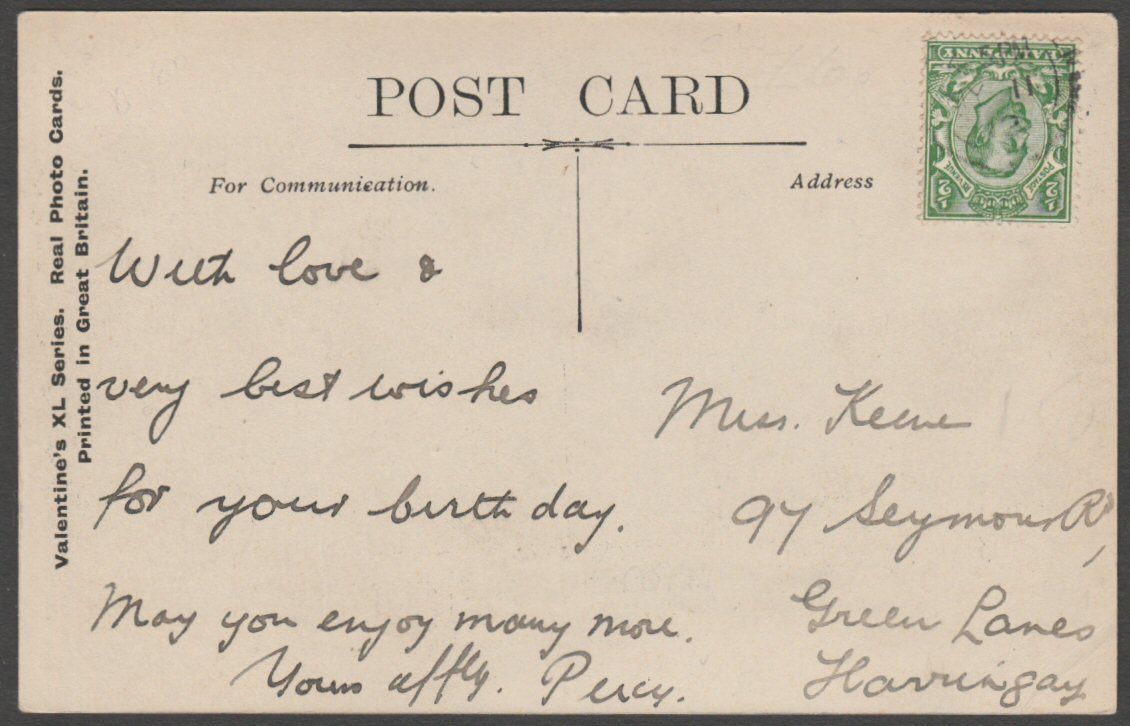 POST CARD
For Communication.
Address
Valentine's XL Series. Real Photo Cards.
Printed in Great Britain.
With love &
very best wishes
for your birthday.
May you enjoy many more.
Yours affly. Percy.
Miss. Keene
97 Seymour Rd,
Green Lanes
Harringay
HALFPENNY
POSTAGE
REVENUE
1/2
1/2